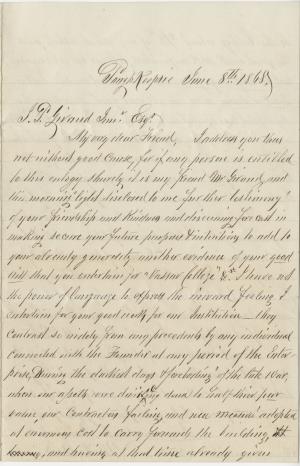 Poughkeepsie June 8th 1868
J. P. Giraud Junr. Esqr.
My very dear Friend, I address you thus
not without good Cause, for if any person is entitled
to this eulogy surely it is my friend Mr Giraud, and
this morning's light disclosed to me further testimony
of your friendship and Kindness and
making secure your future purpose & intention to add to
your already generosity another evidence of your good
will that you entertain for "Vassar College" &c. I have not
the power of language to express the inward feeling I
entertain for your good will for our Institution - they
contrast so widely from any precedents by any individual
connected with the Founder at any period of the Enter
prise, During the darkest days & of the late War,
when our were down to
our Contractors failing and new measures adopted
at enormous Cost to Carry forward the building,
and having at that time already given